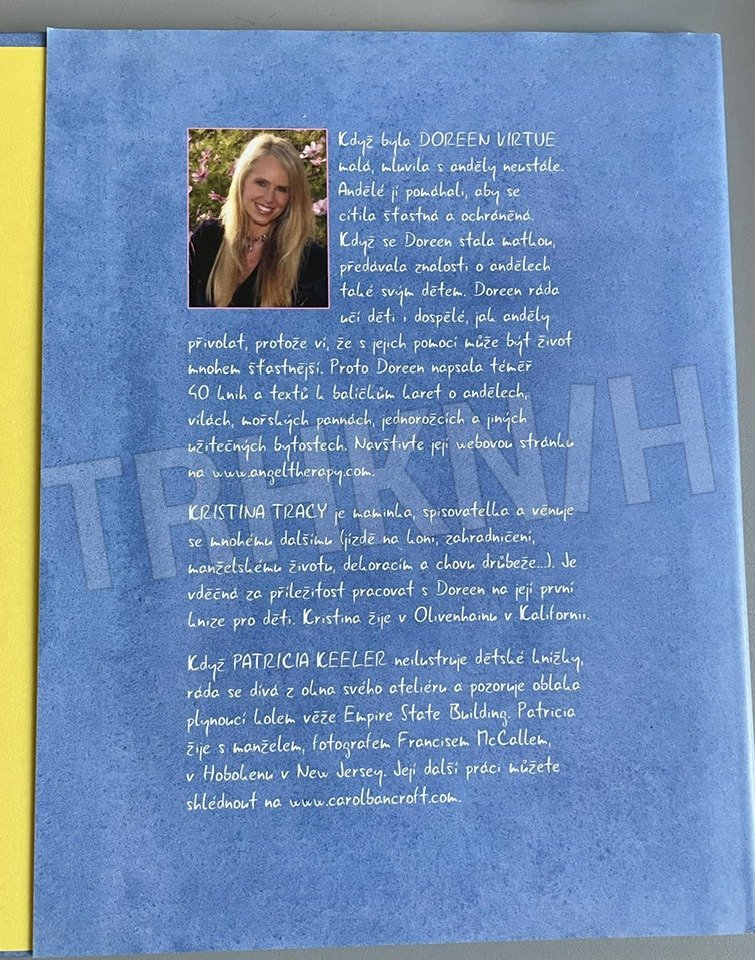 Když byla DOREEN VIRTUE
malá, mluvila s anděly neustále.
Andělé jí pomáhali, aby se
cítila šťastná a ochráněná.
Když se Doreen stala matkou,
předávala znalosti o andělech
také svým dětem. Doreen ráda
učí děti i dospělé, jak anděly
přivolat, protože ví, že s jejich pomocí může být život
mnohem šťastnější. Proto Doreen napsala téměř
40 knih a textů k balíčkům karet o andělech,
vílách, mořských pannách, jednorožcích a jiných
užitečných bytostech. Navštivte její webovou stránku
na www.angeltherapy.com.
KRISTINA TRACY je maminka, spisovatelka a věnuje
se mnohému dalšímu (jízdě na koni, zahradničení,
manželskému životu, dekoracím a chovu drůbeže...). Je
vděčná za příležitost pracovat s Doreen na její první
knize pro děti. Kristina žije v Olivenhainu v Kalifornii.
Když PATRICIA KEELER neilustruje dětské knížky,
ráda se dívá z okna svého ateliéru a pozoruje oblaka
plynoucí kolem věže Empire State Building. Patricia
žije s manželem, fotografem Francisem McCallem,
v Hobokenu v New Jersey. Její další práci můžete
shlédnout na www.carolbancroft.com.
TRHKN/H